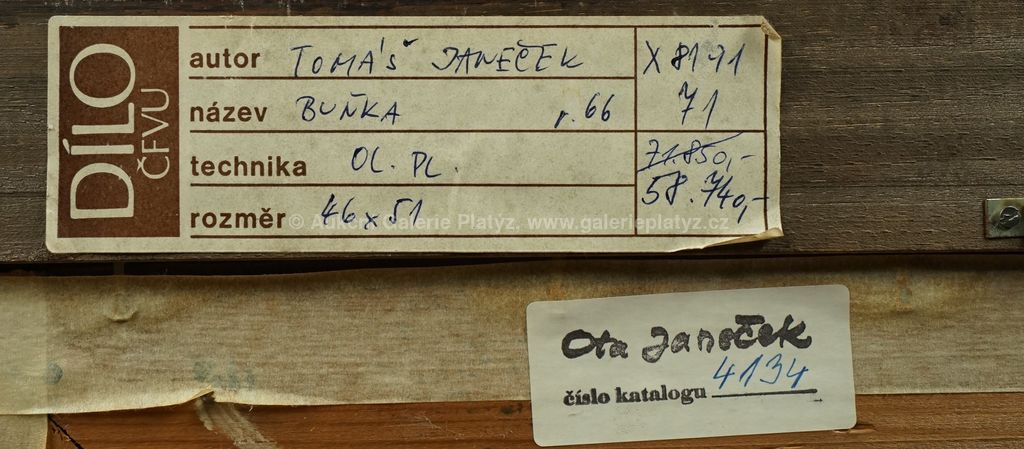 DÍLO
ČFVU
autor TOMÁŠ JANEČEK X 8171
název BUŇKA r. 66 71
technika OL. PL. 71.850,-
58.740,-
rozměr 46 x 51
© Aukční Galerie Platýz, www.galerieplatyz.cz
Ota Janeček
číslo katalogu 4134